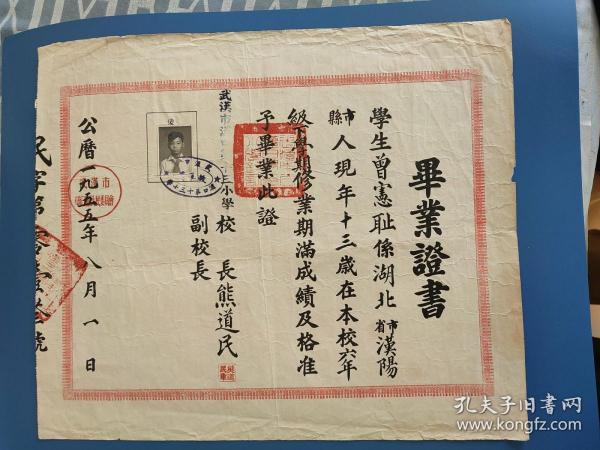 畢業證書
學生曾憲耻係湖北省市漢陽
市縣人現年十三歲在本校六年
級下學期修業期滿成績及格准
予畢業此證
武漢市
小學校長熊道民
副校長
公曆一九五五年八月一日
民字第
號
孔夫子旧书网
www.kongfz.com